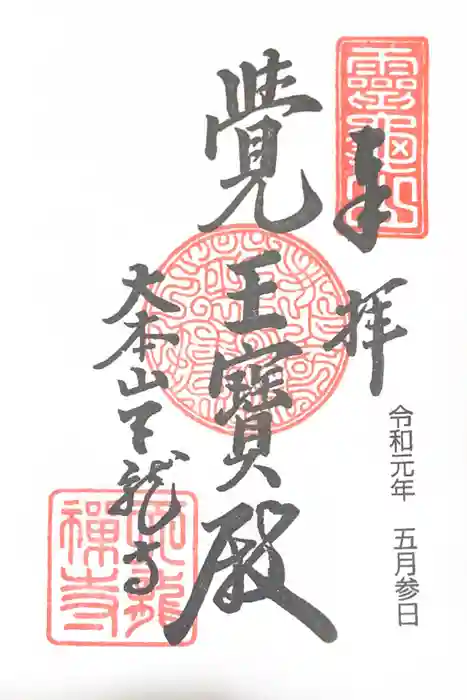 靈龜山
令和元年　五月参日
奉拝
覺王寶殿
大本山天龍寺
天龍
禪寺